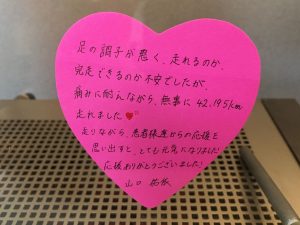 足の調子が悪く、走れるのか、
完走できるのか不安でしたが、
痛みに耐えながら、無事に 42.195km
走れました❤
走りながら、患者様達からの応援を
思い出すと、とても元気になりました!
応援ありがとうございました!
山口